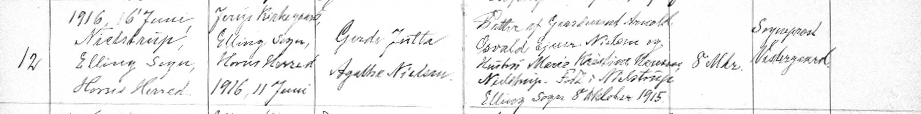 12
1916, 16 Juni,
Nielstrup,
Elling Sogn,
Horns Herred
Kirkegaard,
Elling Sogn,
Horns Herred
1916, 11 Juni
Gerda Jutta
Agathe Nielsen.
Datter af Gaardmand Arnold
Osvald Ejner Nielsen og
Hustru Marie Kristine
Nielstrup. Født i Nielstrup
Elling Sogn 8 Oktober 1915.
8 Mdr.
Sogneprest
Vestergaard.